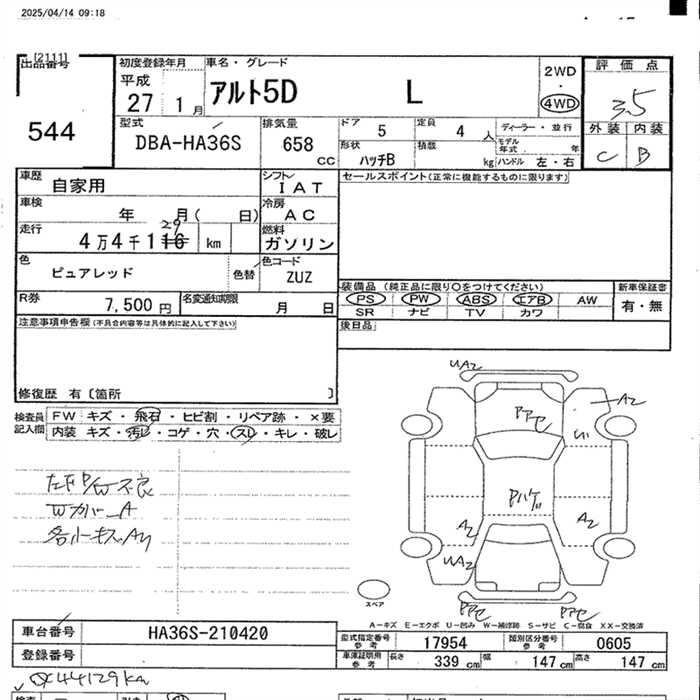 2025/04/14 09:18
[2111]
出品番号
544
初度登録年月
平成
27 1月
車名・グレード
アルト5D L
2WD
4WD
評価点
3.5
外装 内装
C B
型式
DBA-HA36S
排気量
658
CC
ドア
5
定員
4人
ディーラー・並行
モデル年式 年
形状
ハッチB
積載
kg
ハンドル 左・右
車歴
自家用
シフト
IAT
セールスポイント(正常に機能するものに限ります)
車検
年 月( 日)
冷房
AC
走行
29
4万4千116 km
燃料
ガソリン
色
ピュアレッド
色替
色コード
ZUZ
R券
7,500円
名変通知期限
月 日
装備品 (純正品に限り○をつけてください)
新車保証書
PS PW ABS エアB AW
有・無
SR ナビ TV カワ
後日品
注意事項申告欄(不具合内容等は具体的に記入して下さい)
修復歴 有〔箇所 〕
検査員記入欄
FW キズ・飛石・ヒビ割・リペア跡・×要
内装 キズ・汚レ・コゲ・穴・スレ・キレ・破レ
UA2
A2
U1
Pハゲ
A2
A2
UA2
W カバーA
各小キズ
スペア
A-キズ E-エクボ U-凹み W-補修跡 S-サビ C-腐食 XX-交換済
車台番号
HA36S-210420
登録番号
型式指定番号
参考
17954
類別区分番号
参考
0605
車庫証明用
参考
長さ 339 cm 幅 147 cm 高さ 147 cm
44129km